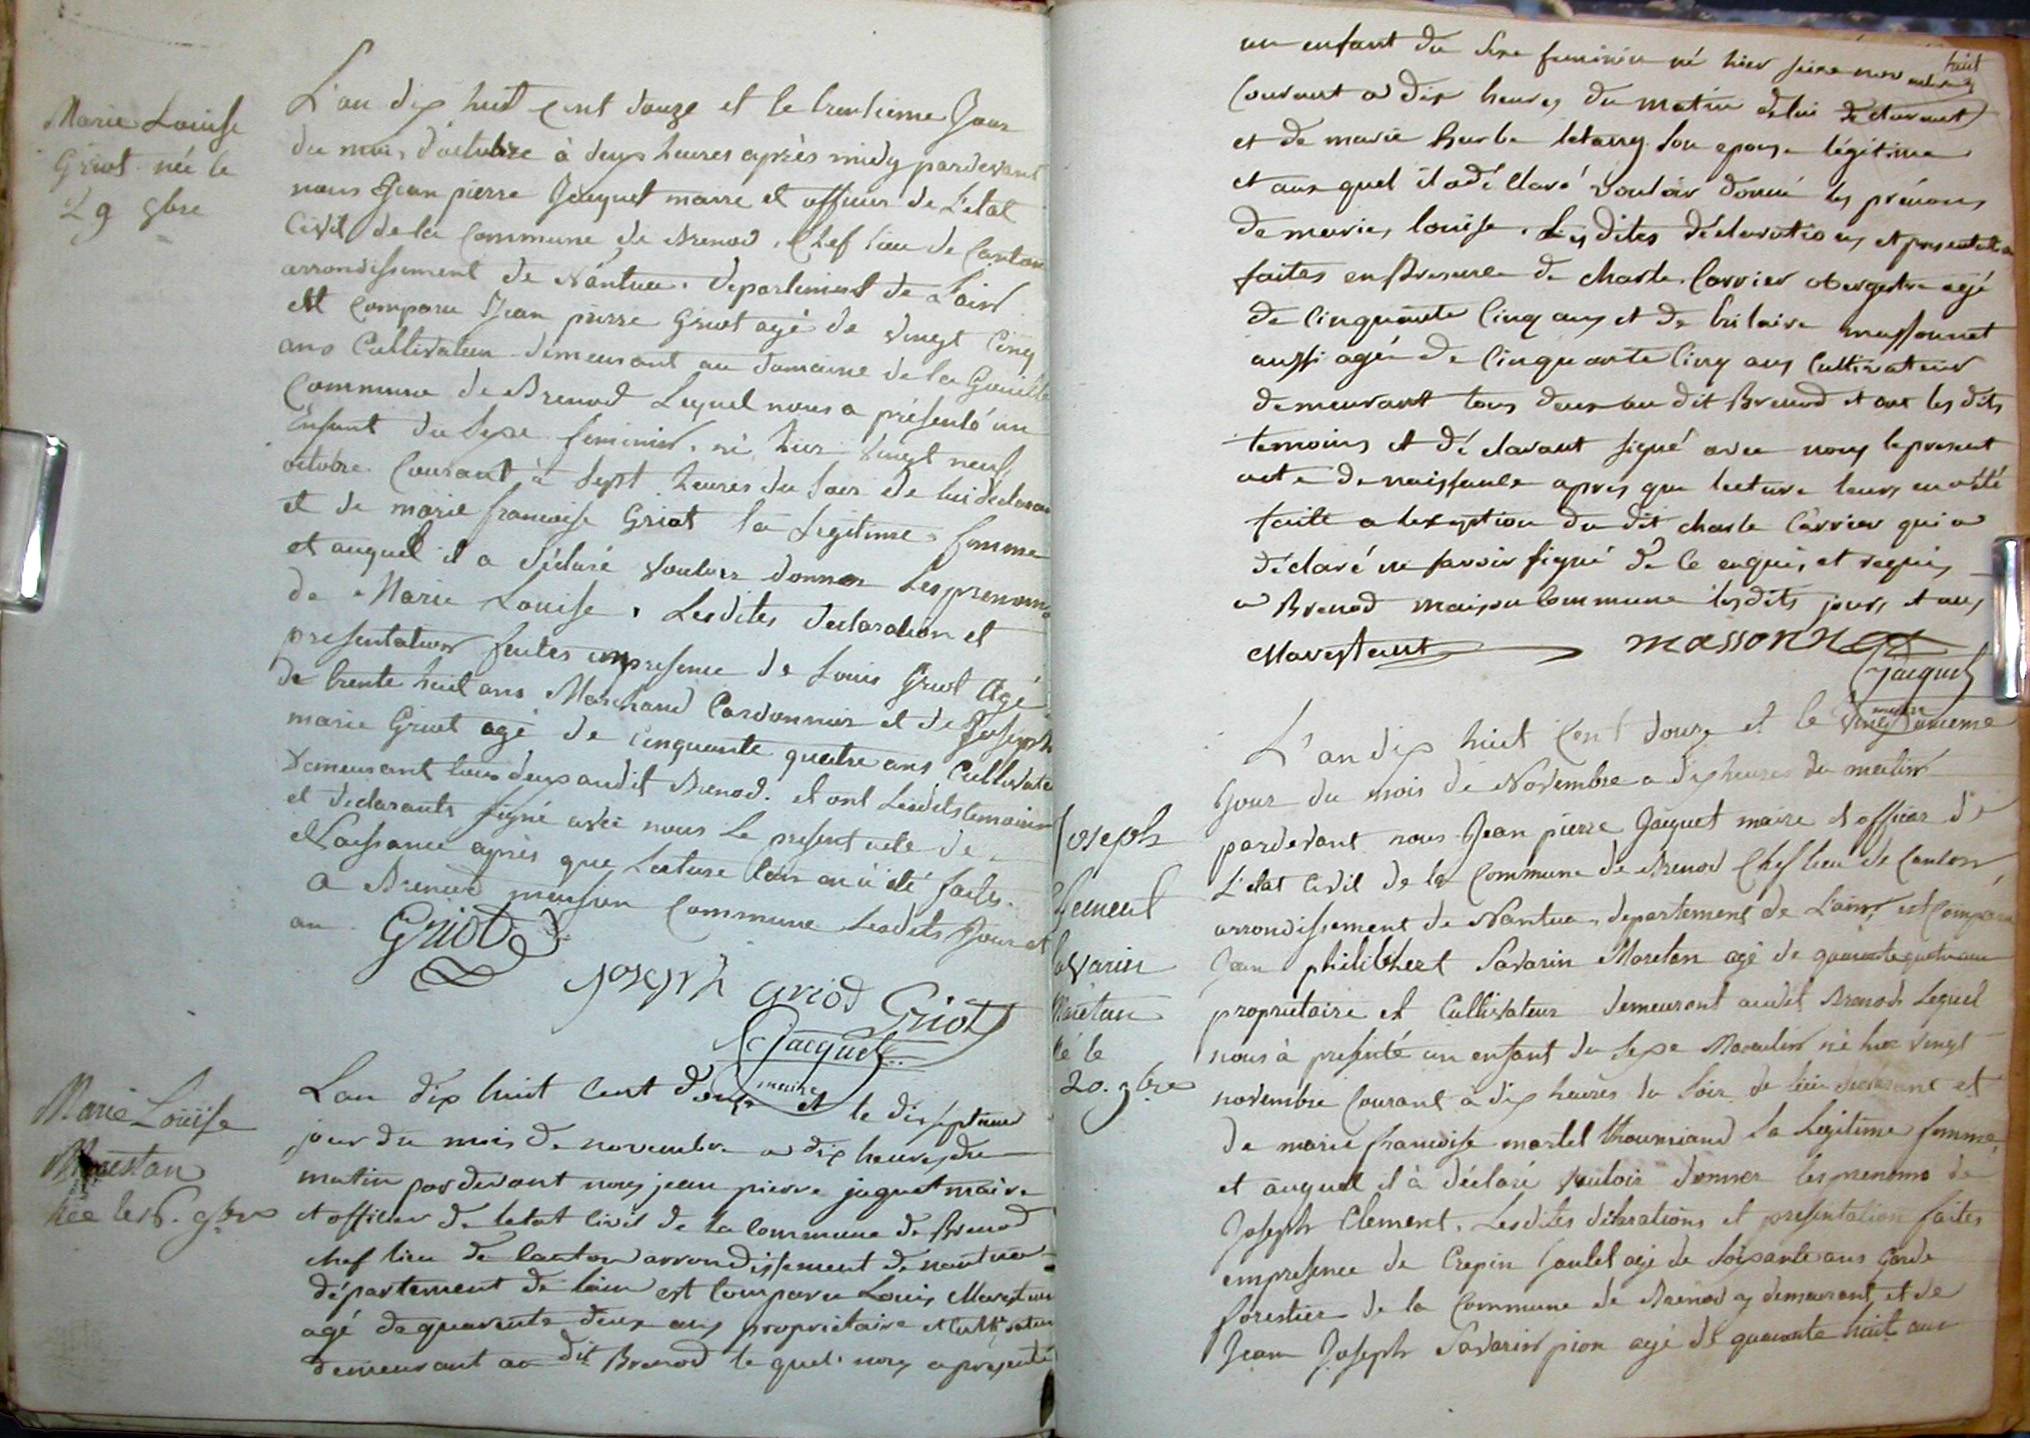 Marie Louise
Griot née le
29 8bre
L'an dix huit cent douze et le trentieme Jour
du mois d'octobre à deux heures après midy pardevant
nous Jean pierre Jacquet maire et officier de L'etat
Civil de la Commune de Brenod, Chef lieu de Canton
arrondissement de Nantua, Departement de Lain
est Comparu Jean pierre Griot agé de vingt Cinq
ans Cultivateur demeurant au domaine de la
Commune de Brenod Lequel nous a présenté un
Enfant du Sexe feminin, né hier vingt neuf
octobre Courant à Sept heures du Soir de lui declarant
et de marie francoise Griot la Legitime femme
et auquel il a déclaré vouloir donner Les prenoms
de Marie Louise. Lesdites declaration et
presentation faites en presence de Louis Griot Agé
de trente huit ans Marchand Cordonnier et de Joseph
marie Griot agé de cinquante quatre ans Cultivateur
demeurant tous deux audit Brenod. et ont Lesdits temoins
et declarants signé avec nous Le present acte de
Naissance après que Lecture leur en a été faite
a Brenod maison Commune Lesdits Jour et
an. Griot
Joseph Griod Griot
Jacquet
maire
Marie Louise
Marestan
née le 16. 9bre
L'an dix huit Cent douze et le dixseptieme
jour du mois de novembre a dix heures du
matin pardevant nous jean pierre jaquet maire
et officier de letat civil de la Commune de Brenod
chef lieu de Canton arrondissement de nantua
département de lain est Comparu Louis Marestan
agé de quarente deux ans propriétaire et Cultivateur
demeurant au dit Brenod le quel nous a présenté
un enfant du Sexe feminin né hier seize novembre
Courant a dix heures du matin de lui declarant
et de marie letang son epouse légitime
et auxquel il a déclaré vouloir donné les prénoms
de marie, louise. Les dites déclarations et presentation
faites en presence de charle Carrier obergiste agé
de Cinquante Cinq ans et de hilaire massonnet
aussi agé de Cinquante Cinq ans Cultivateur
demeurant tous deux au dit Brenod et ont les dits
temoins et déclarant signé avec nous le present
acte de naissance apres que lecture leurs en a été
faite a lexeption du dit charle Carrier qui a
déclaré ne savoir signé de ce enquis et requis
a Brenod maison Commune lesdits jour, et an,
Marestant massonnet
Jacquet
maire
Joseph
Clement
Savarin
Maretan
né le
20. 9bre
L'an dix huit Cent douze et le vingt unieme
Jour du mois de Novembre a dix heures du matin
pardevant nous Jean pierre Jacquet maire et officier de
L'etat Civil de la Commune de Brenod Chef lieu de Canton
arrondissement de Nantua, departement de Lain, est Comparu
Jean philibert Savarin Maretan agé de quarante quatre ans
proprietaire et Cultivateur demeurant audit Brenod Lequel
nous à présenté un enfant du Sexe Masculin né hier vingt
novembre Courant à dix heures du Soir de lui declarant et
de marie francoise martel la Legitime femme
et auquel il à déclaré vouloir donner les prenoms de
Joseph Clement. Lesdites déclarations et presentation faites
en presence de Crepin agé de Soixante ans Garde
forestier de la Commune de Brenod y demeurant, et de
Jean Joseph Savarin pion agé de quarante huit ans